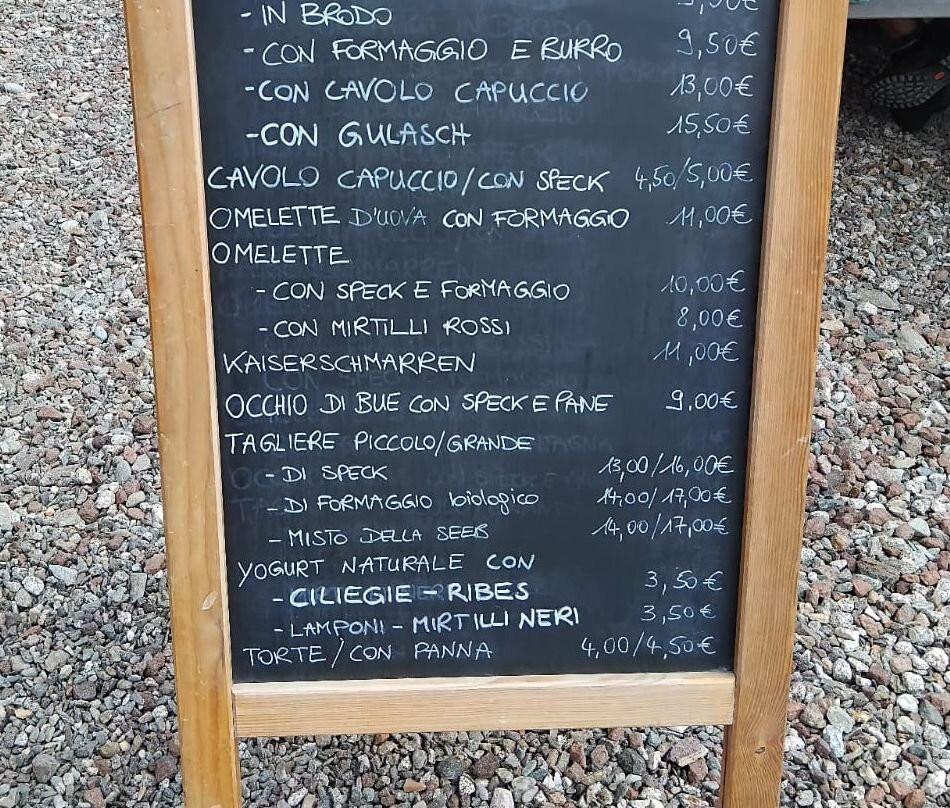 - IN BRODO
- CON FORMAGGIO E BURRO 9,50€
- CON CAVOLO CAPUCCIO 13,00€
- CON GULASCH 15,50€
CAVOLO CAPUCCIO/CON SPECK 4,50/5,00€
OMELETTE D'UOVA CON FORMAGGIO 11,00€
OMELETTE
- CON SPECK E FORMAGGIO 10,00€
- CON MIRTILLI ROSSI 8,00€
KAISERSCHMARREN 11,00€
OCCHIO DI BUE CON SPECK E PANE 9,00€
TAGLIERE PICCOLO/GRANDE
- DI SPECK 13,00/16,00€
- DI FORMAGGIO biologico 14,00/17,00€
- MISTO DELLA SEEB 14,00/17,00€
YOGURT NATURALE CON
- CILIEGIE - RIBES 3,50€
- LAMPONI - MIRTILLI NERI 3,50€
TORTE/CON PANNA 4,00/4,50€